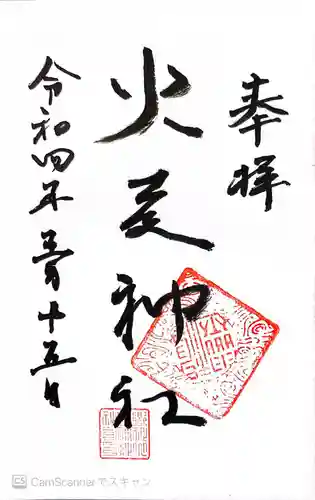 奉拝
火走神社
令和四年五月十五日
CS CamScannerでスキャン